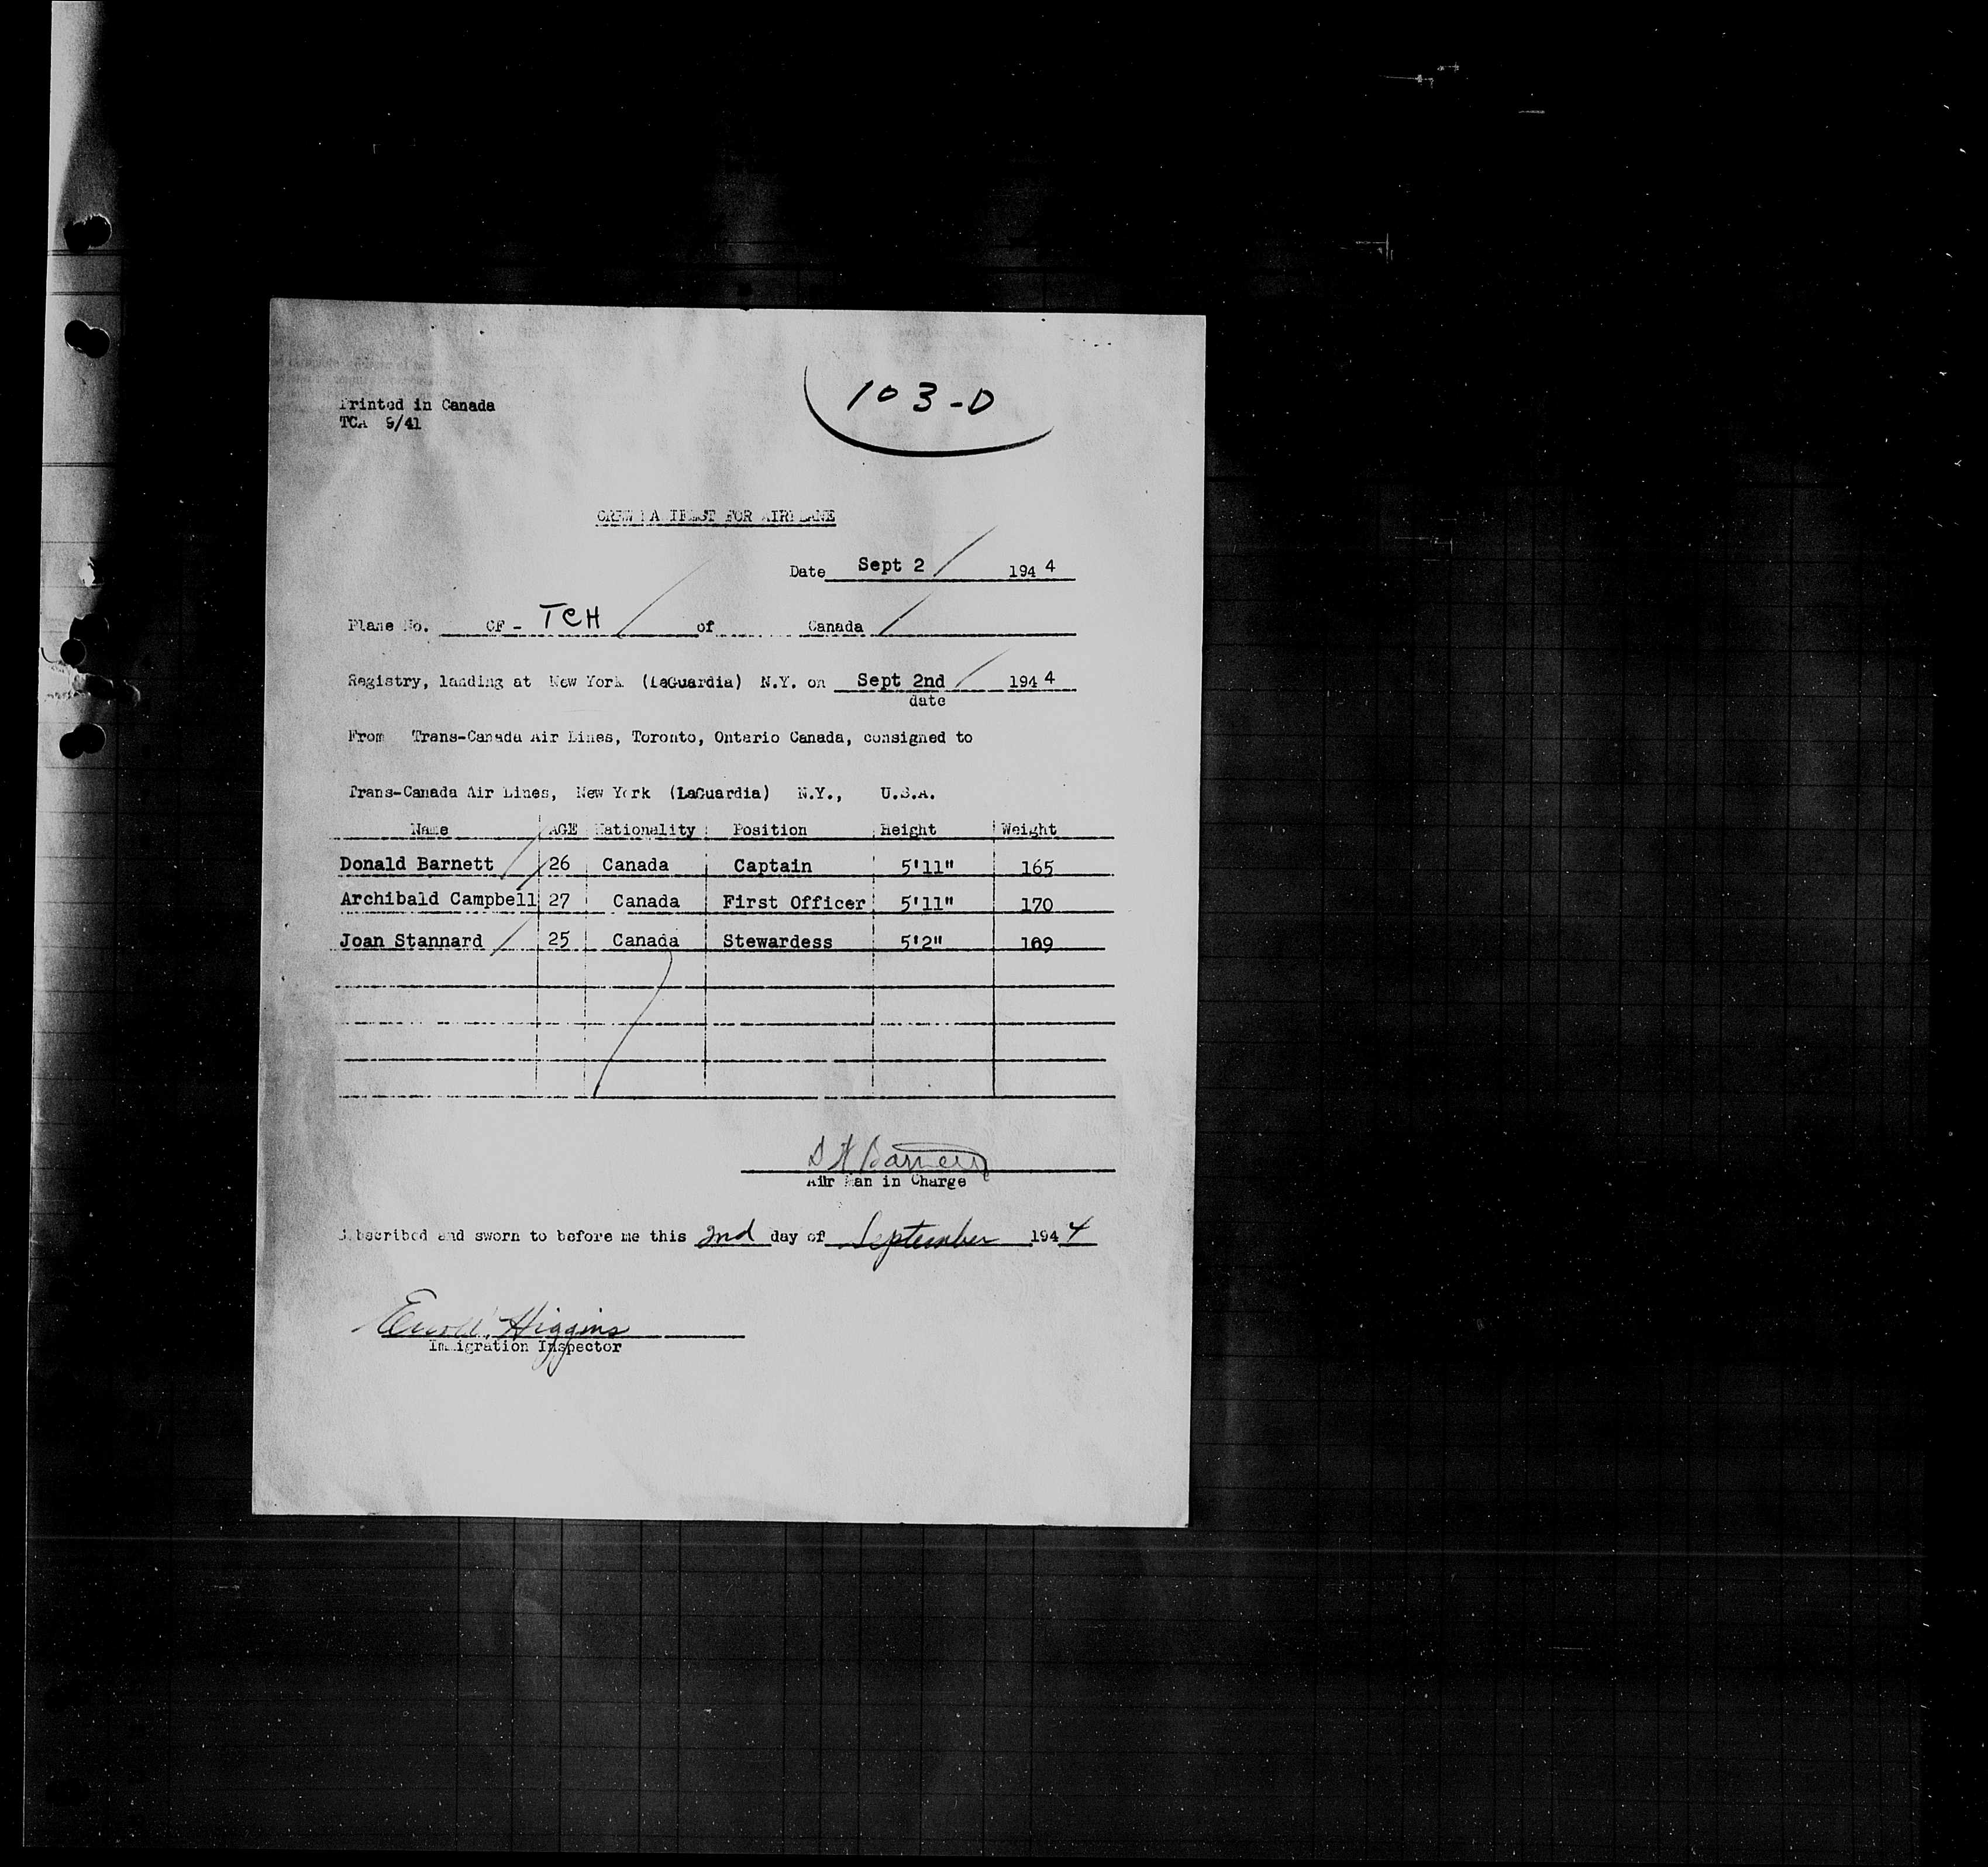 103-D
Printed in Canada
TCA 9/41
CREW MANIFEST FOR AIRPLANE
Date Sept 2 1944
Plane No. CF - TCH of Canada
Registry, landing at New York (LaGuardia) N.Y. on Sept 2nd 1944
date
From Trans-Canada Air Lines, Toronto, Ontario Canada, consigned to
Trans-Canada Air Lines, New York (LaGuardia) N.Y., U.S.A.
Name AGE Nationality Position Height Weight
Donald Barnett 26 Canada Captain 5'11" 165
Archibald Campbell 27 Canada First Officer 5'11" 170
Joan Stannard 25 Canada Stewardess 5'2" 109
Barnett
Air Man in Charge
Subscribed and sworn to before me this 2nd day of September 1944
Higgins
Immigration Inspector